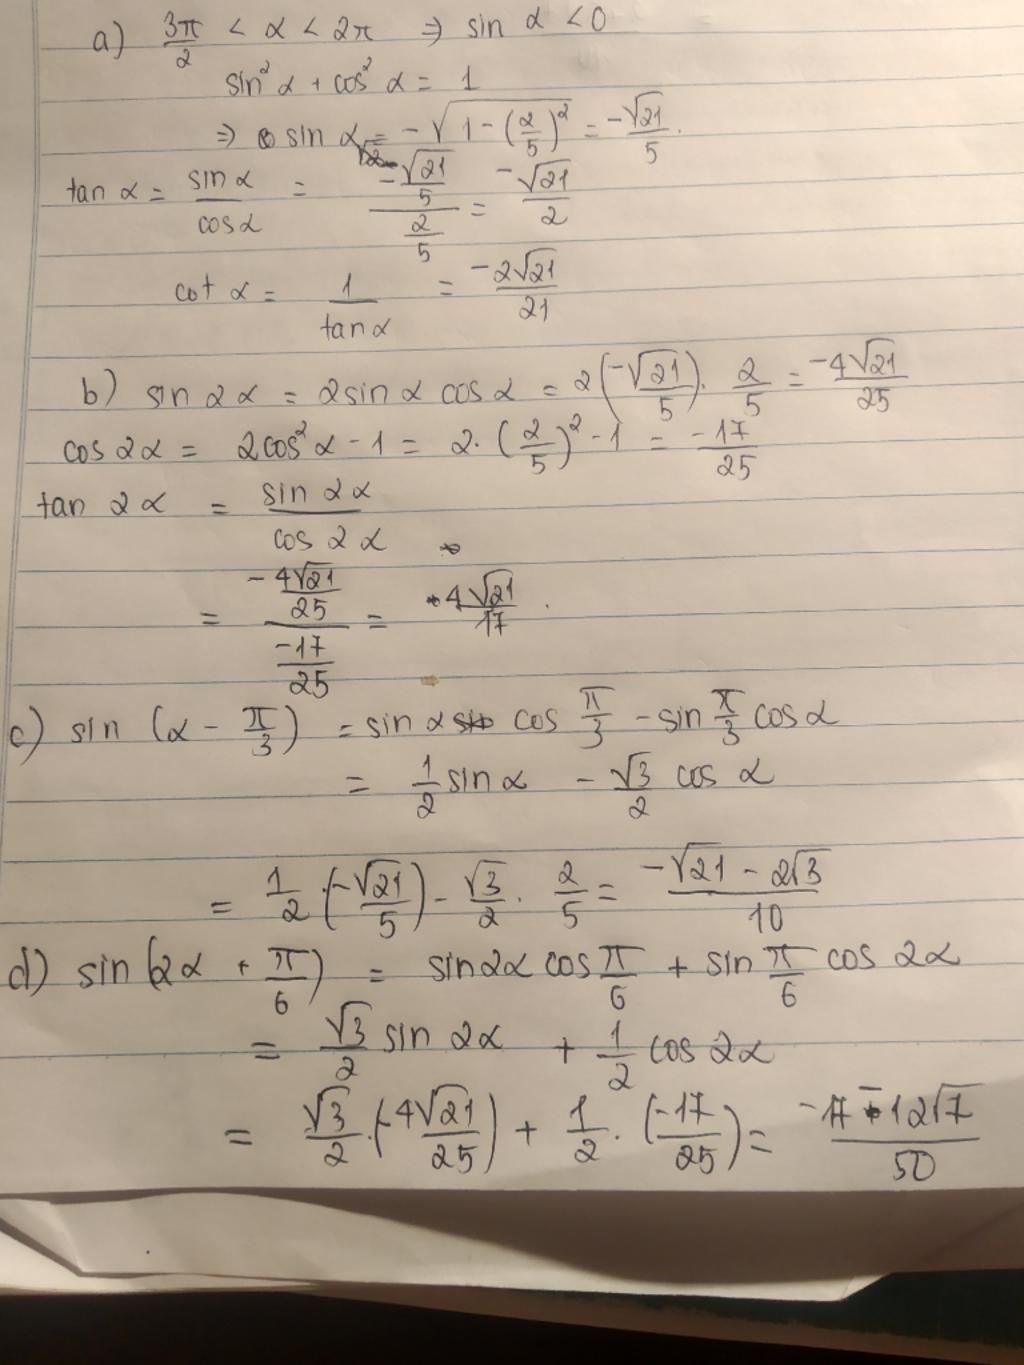 a) 3π/2 < α < 2π ⇒ sin α < 0
sin² α + cos² α = 1
⇒ sin α = -√(1 - (2/5)²) = -√21/5.
tan α = sin α / cos α = (-√21/5) / (2/5) = -√21/2
cot α = 1/tan α = -2√21/21
b) sin 2α = 2 sin α cos α = 2(-√21/5) . 2/5 = -4√21/25
cos 2α = 2cos² α - 1 = 2. (2/5)² - 1 = -17/25
tan 2α = sin 2α / cos 2α
= (-4√21/25) / (-17/25) = 4√21/17 .
c) sin (α - π/3) = sin α cos π/3 - sin π/3 cos α
= 1/2 sin α - √3/2 cos α
= 1/2 . (-√21/5) - √3/2 . 2/5 = (-√21 - 2√3)/10
d) sin (2α + π/6) = sin 2α cos π/6 + sin π/6 cos 2α
= √3/2 sin 2α + 1/2 cos 2α
= √3/2 . (-4√21/25) + 1/2 . (-17/25) = (-17 - 12√7)/50